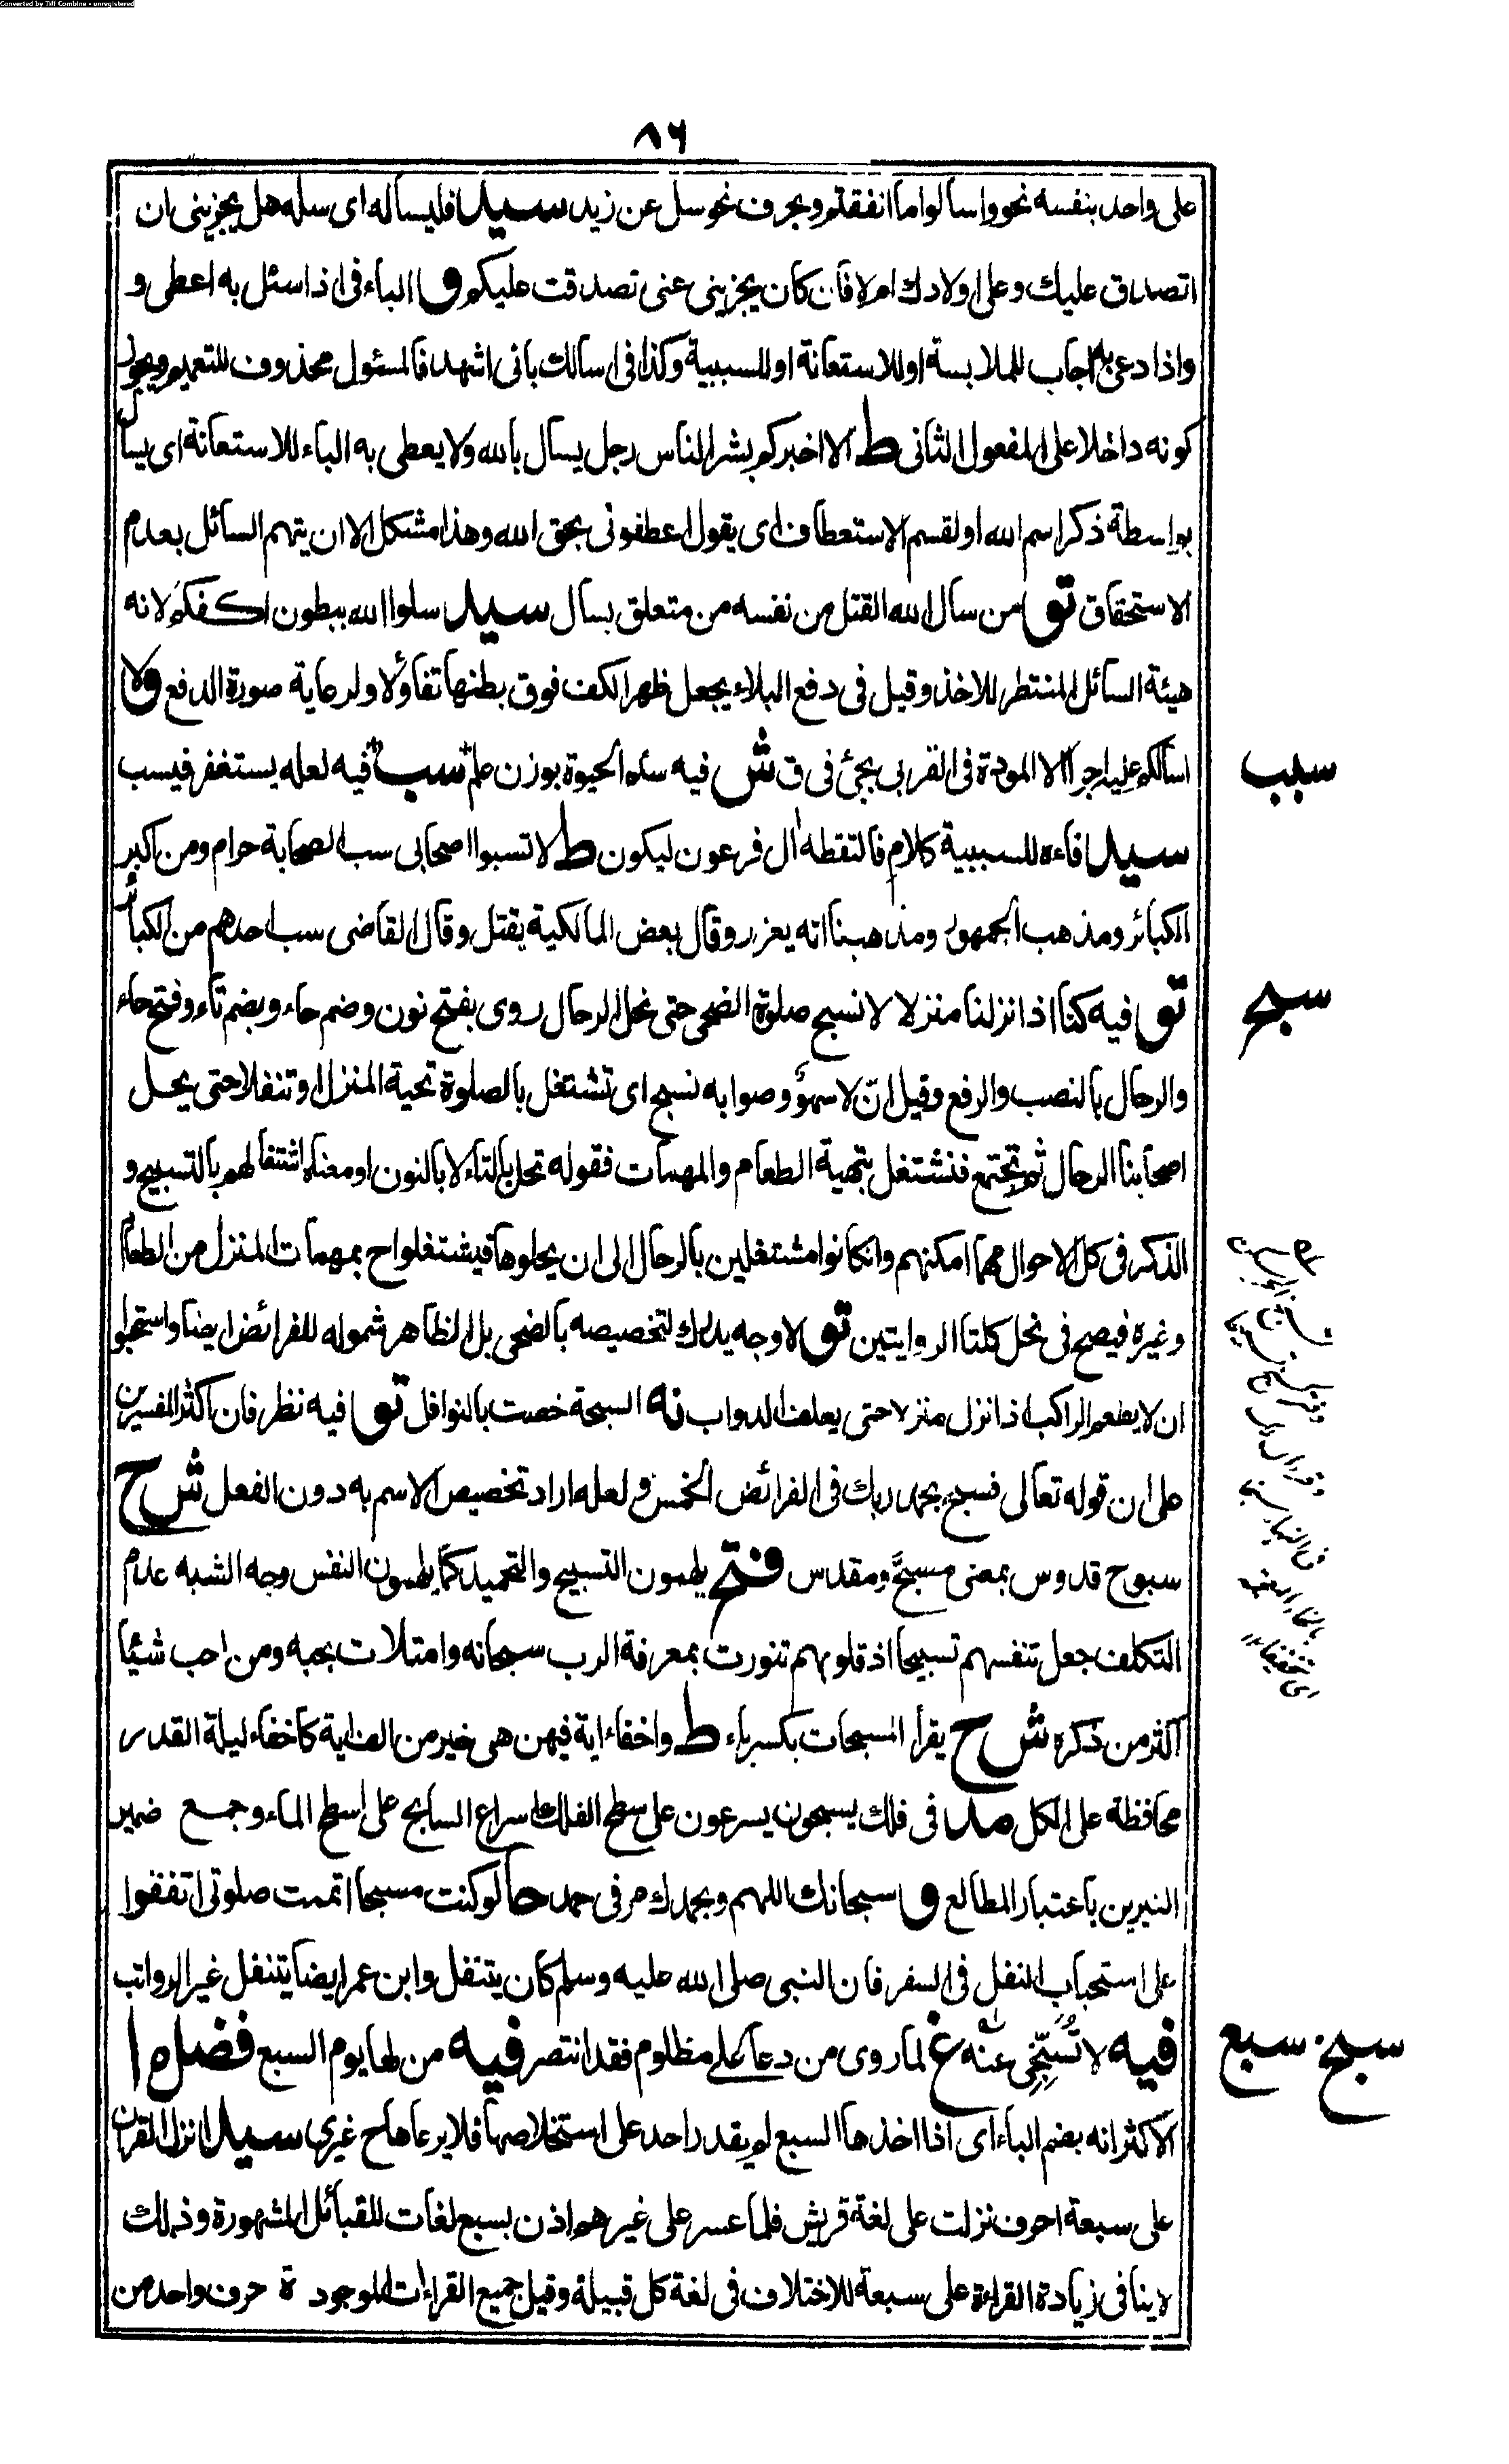 Converted by Tiff Combine - unregistered
٨٦
على واحد بنفسه نحو واسألوا ما انفقتم وبحرف نحو سل عن زيد سيد فليسأله اى سله هل يجزينى ان
اتصدق عليك وعلى اولادك ام لا فان كان يجزينى عنى تصدقت عليكم و الباء فى اذا سئل به اعطى و
واذا دعى به اجاب للملابسة او للاستعانة او للسببية وكذا فى اسألك بانى اشهد فالمسئول محذوف للتعميم ويجوز
كونه داخلا على المفعول الثانى ط الا اخبركم بشر الناس رجل يسأل بالله ولا يعطى به الباء للاستعانة اى يسأل
بواسطة ذكر اسم الله او لقسم الاستعطاف اى يقول اعطفونى بحق الله وهذا مشكل الا ان يتهم السائل بعدم
الاستحقاق تو من سأل الله القتل من نفسه من متعلق بسأل سيد سلوا الله ببطون اكفكم لانه
هيئة السائل المنتظر للاخذ وقيل فى دفع البلاء يجعل ظهر الكف فوق بطنها تفاؤلا ولرعاية صورة الدفع ولا
اسألكم عليه اجرا الا المودة فى القربى يجئ فى ق ش فيه سئه الحيوة بوزن علم سب فيه لعله يستغفر فيسب
سبب
سيد فاءه للسببية كلام فالتقطه ال فرعون ليكون ط لا تسبوا اصحابى سب الصحابة حرام ومن اكبر
الكبائر ومذهب الجمهور ومذهبنا انه يعزر وقال بعض المالكية يقتل وقال القاضى سب احدهم من الكبائر
تو فيه كنا اذا نزلنا منزلا لا نسبح صلوة الضحى حتى نحل الرحال روى بفتح نون وضم حاء وبضم تاء وفتح حاء
سبح
والرحال بالنصب والرفع وقيل انّ لا سهؤ وصوابه نسبح اى تشتغل بالصلوة تحية المنزل او تنفلا حتى يحل
اصحابنا الرحال ثم تجتمع فنشتغل بتهية الطعام والمهمات فقوله تحل بالتاء لا بالنون او معناه اشتغالهم بالتسبيح و
الذكر فى كل الاحوال مهما امكنهم وان كانوا مشتغلين بالرحال الى ان يحلوها فيشتغلوا ح بمهمات المنزل من الطعام
وغيره فيصح فى نحل كلتا الروايتين تو لا وجه يدلك لتخصيصه بالضحى بل الظاهر شموله للفرائض ايضا واستحبوا
ان لا يطعم الراكب اذا نزل منزلا حتى يعلف الدواب نه السبحة خصت بالنوافل تو فيه نظر فان اكثر المفسرين
على ان قوله تعالى فسبح بحمد ربك فى الفرائض الخمس ولعله اراد تخصيص الاسم به دون الفعل ش ح
سبوح قدوس بمعنى مسبحّ ومقدس فتح يلهمون التسبيح والتحميد كما يلهمون النفس وجه الشبه عدم
التكلف جعل تنفسهم تسبيحا اذ قلوبهم تنورت بمعرفة الرب سبحانه وامتلات بحبه ومن احب شيئا
اكثر من ذكره ش ح يقرأ المسبحات بكسر باء ط واخفاء اية فيهن هى خير من الف اية كاخفاء ليلة القدر
محافظة على الكل مد فى فلك يسبحون يسرعون على سطح الفلك اسراع السابح على سطح الماء وجمع ضمير
النيرين باعتبار المطالع و سبحانك اللهم وبحمدك مر فى حمد حا لو كنت مسبحا اتممت صلوتى اتفقوا
على استحباب النفل فى السفر فان النبى صلى الله عليه وسلم كان يتنفل وابن عمر ايضا يتنفل غير الرواتب
فيه لا تُسَبِّخِى عنه غ لما روى من دعا على مظلوم فقد انتصر فيه من لها يوم السبع فضل ا
سبخ سبع
الاكثر انه بضم الباء اى اذا اخذها السبع لم يقدر احد على استخلاصها فلا يرعاها ح غيرى سيد انزل القران
على سبعة احرف نزلت على لغة قريش فلما عسر على غيرهم اذن بسبع لغات للقبائل المشهورة وذلك
لا ينافى زيادة القراءة على سبعة للاختلاف فى لغة كل قبيلة وقيل جميع القراءات الموجودة حرف واحد من